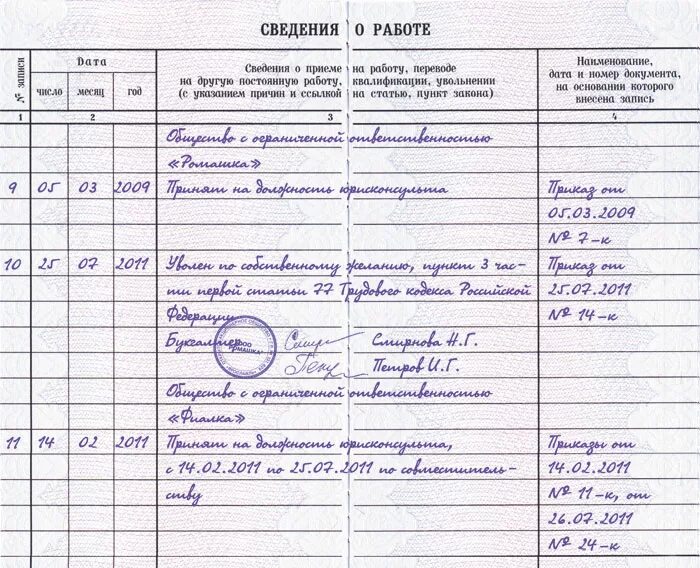 СВЕДЕНИЯ О РАБОТЕ
№ записи
Дата
число месяц год
Сведения о приеме на работу, переводе
на другую постоянную работу, квалификации, увольнении
(с указанием причин и ссылкой на статью, пункт закона)
Наименование,
дата и номер документа,
на основании которого
внесена запись
1 2 3 4
Общество с ограниченной ответственностью
«Ромашка»
9 05 03 2009 Принят на должность юрисконсульта Приказ от
05.03.2009
№ 7-к
10 25 07 2011 Уволен по собственному желанию, пункт 3 час- Приказ от
ти первой статьи 77 Трудового кодекса Российской 25.07.2011
Федерации № 14-к
Бухгалтер Смирнова Н.Г.
Петров И.Г.
ООО
"РМАШКА"
Общество с ограниченной ответственностью
«Фиалка»
11 14 02 2011 Принят на должность юрисконсульта, Приказы от
с 14.02.2011 по 25.07.2011 по совместитель- 14.02.2011
ству № 11-к, от
26.07.2011
№ 24-к